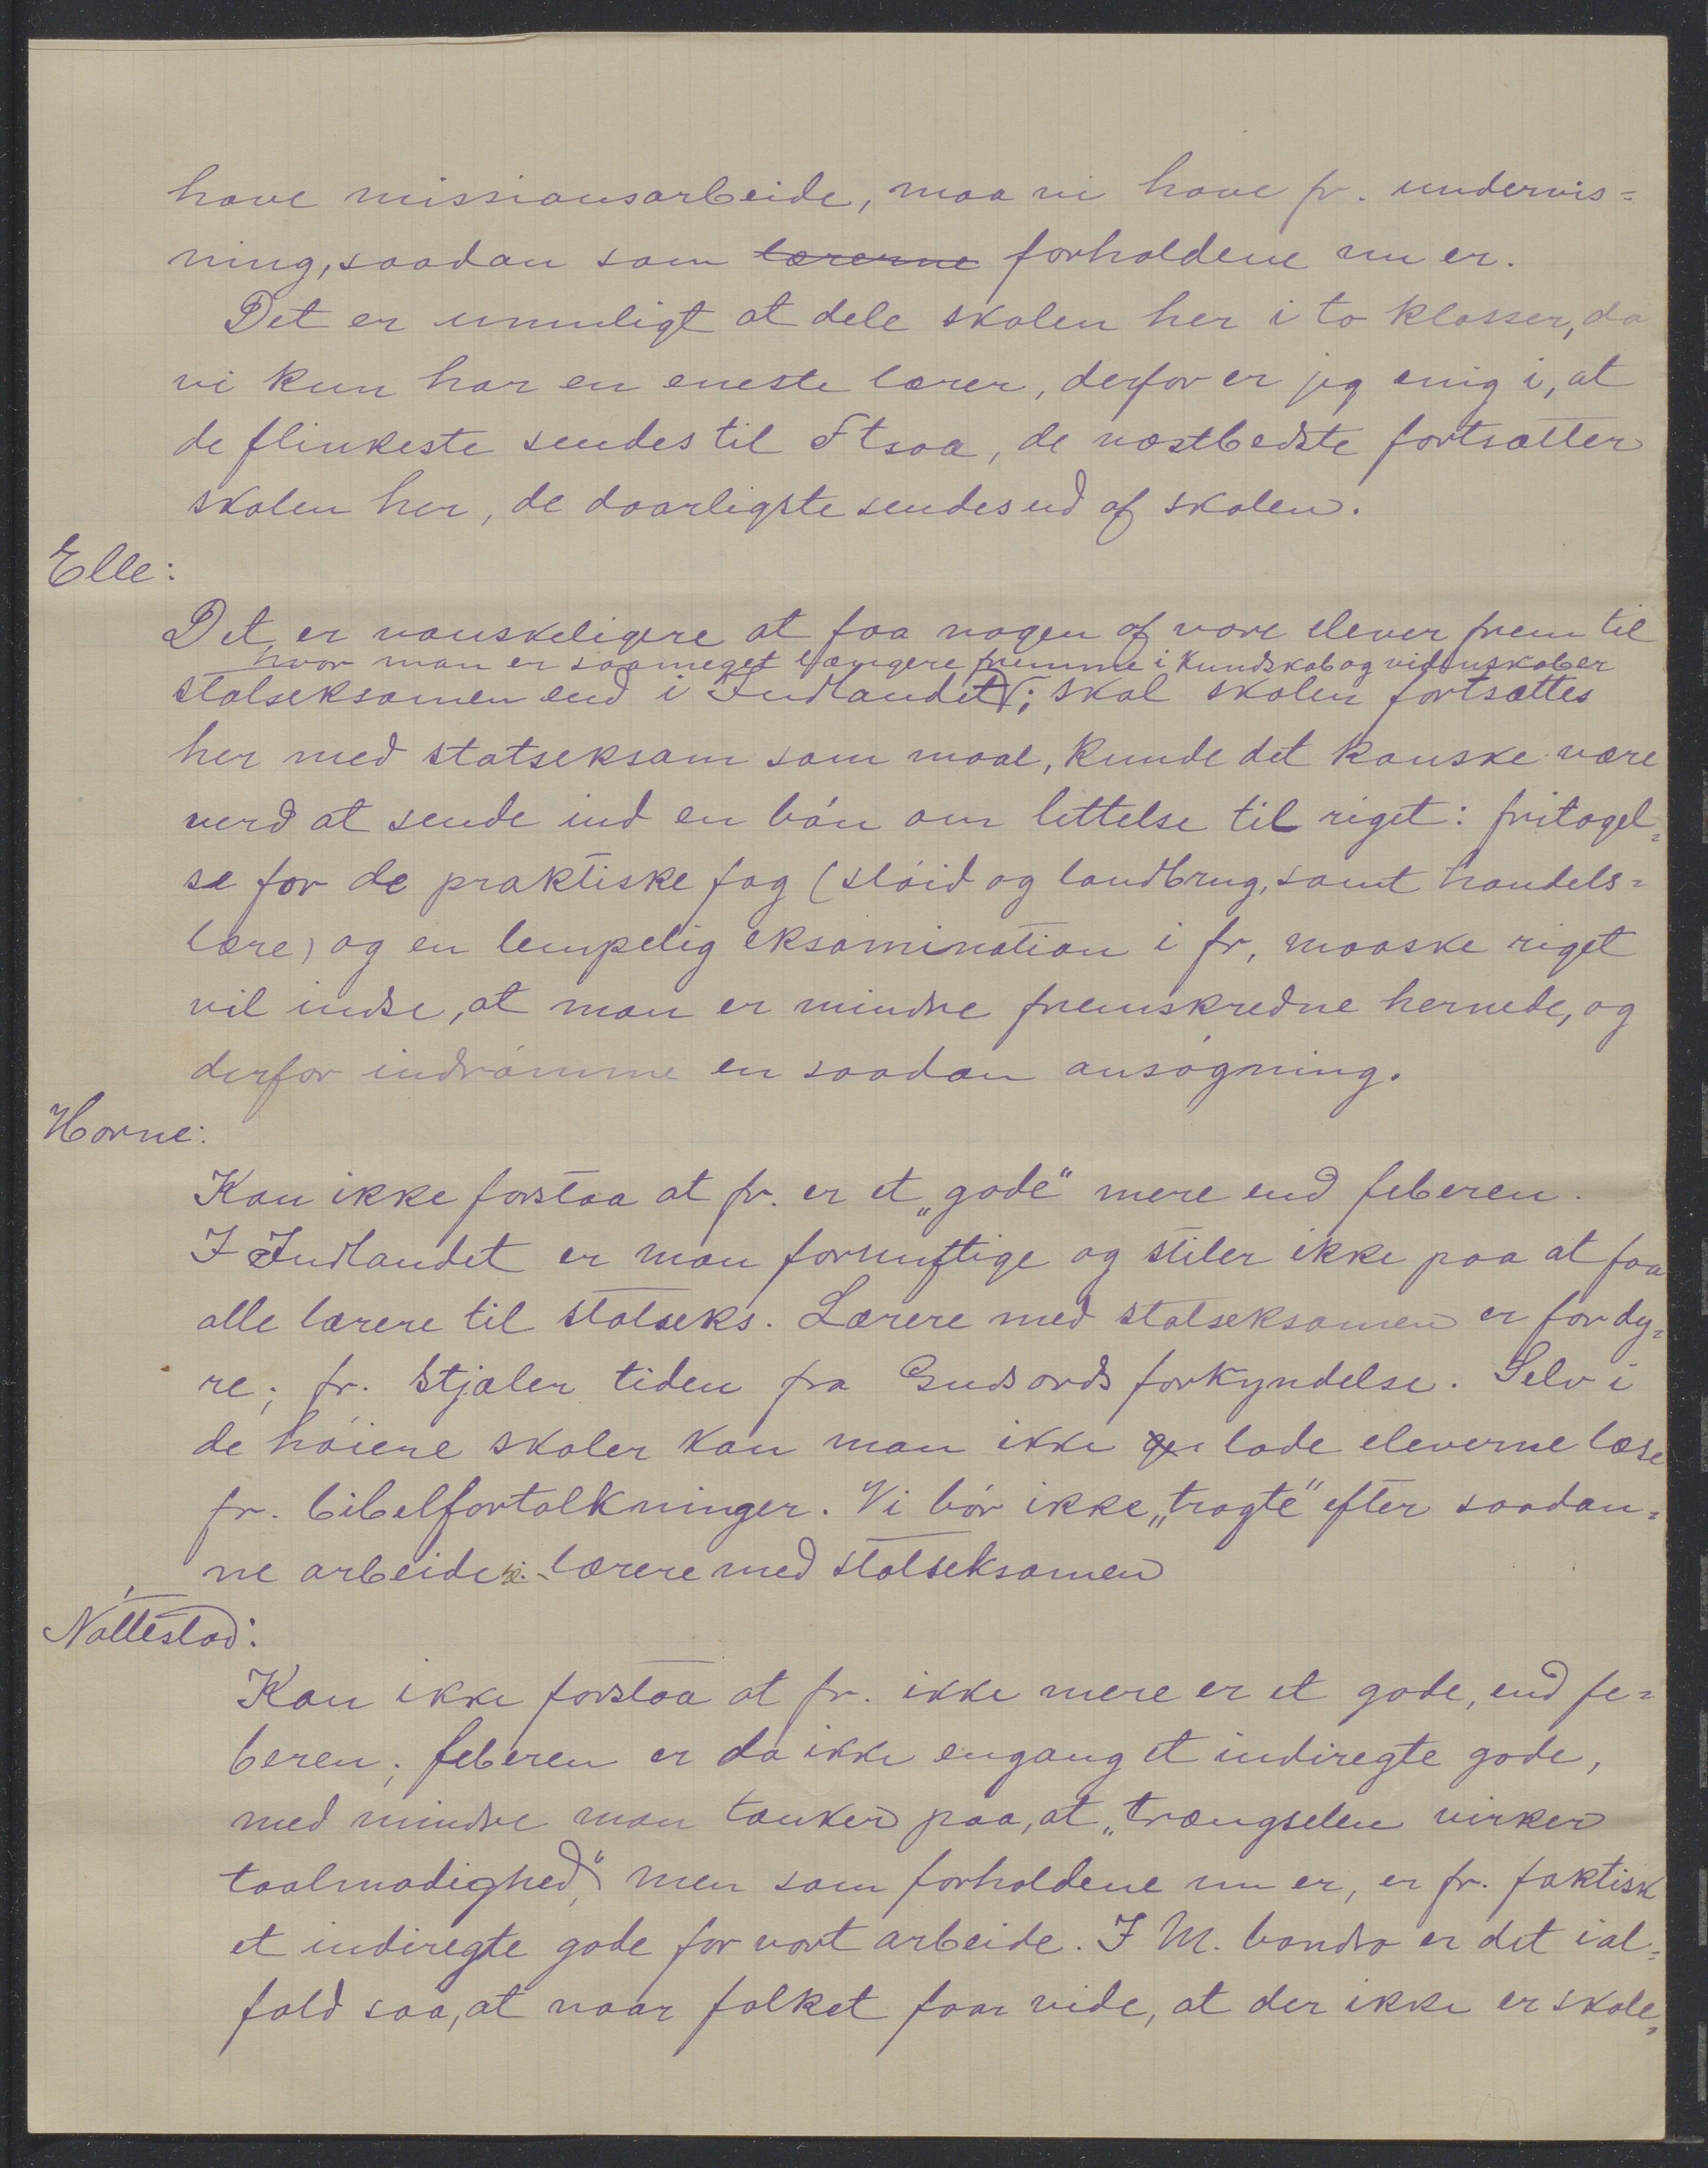 have missionsarbeide, maa vi have fr. undervis=
ning, saadan som lærerne forholdene nu er.
Det er umuligt at dele skolen her i to klasser, da
vi kun har en eneste lærer, derfor er jeg enig i, at
de flinkeste sendes til Ftsoa, de næstbedste fortsætter
skolen her, de daarligste sendes ud af skolen.
Elle:
Det er vanskeligere at faa nogen af vore elever frem til
hvor man er saameget længere fremme i kundskab og videnskaber
statseksamen end i Indlandet; skal skolen fortsættes
her med statseksam som maal, kunde det kanske være
verd at sende ind en bón om lettelse til riget: fritagel=
se for de praktiske fag (slóid og landbrug, samt handels=
lære) og en lempelig eksamination i fr, maaske riget
vil indse, at man er mindre fremskredne hernede, og
derfor indrómme en saadan ansógning.
Horne:
Kan ikke forstaa at fr. er et „gode“ mere end feberen.
I Indlandet er man fornuftige og stiler ikke paa at faa
alle lærere til statseks. Lærere med statseksamen er for dy=
re; fr. stjæler tiden fra Guds ords forkyndelse. Selv i
de hóiere skoler kan man ikke lade eleverne læse
fr. bibelfortolkninger. Vi bór ikke „tragte“ efter saadan=
ne arbeide: lærere med statseksamen
Nóttestad:
Kan ikke forstaa at fr. ikke mere er et gode, end fe=
beren; feberen er da ikke engang et indiregte gode,
med mindre man tænker paa, at „trængselen virker
taalmodighed“, men som forholdene nu er, er fr. faktisk
et indiregte gode for vort arbeide. I M. bondro er det ial=
fald saa, at naar folket faar vide, at der ikke er skole=